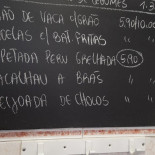 DE LEGUMES 1.3
ÃO DE VACA C/GRÃO 5.90/10.00
ECELAS C/BAT FRITAS
PETADA PERU GRELHADA 5.90
ACALHAU A BRÁS
EIJOADA DE CHOCOS